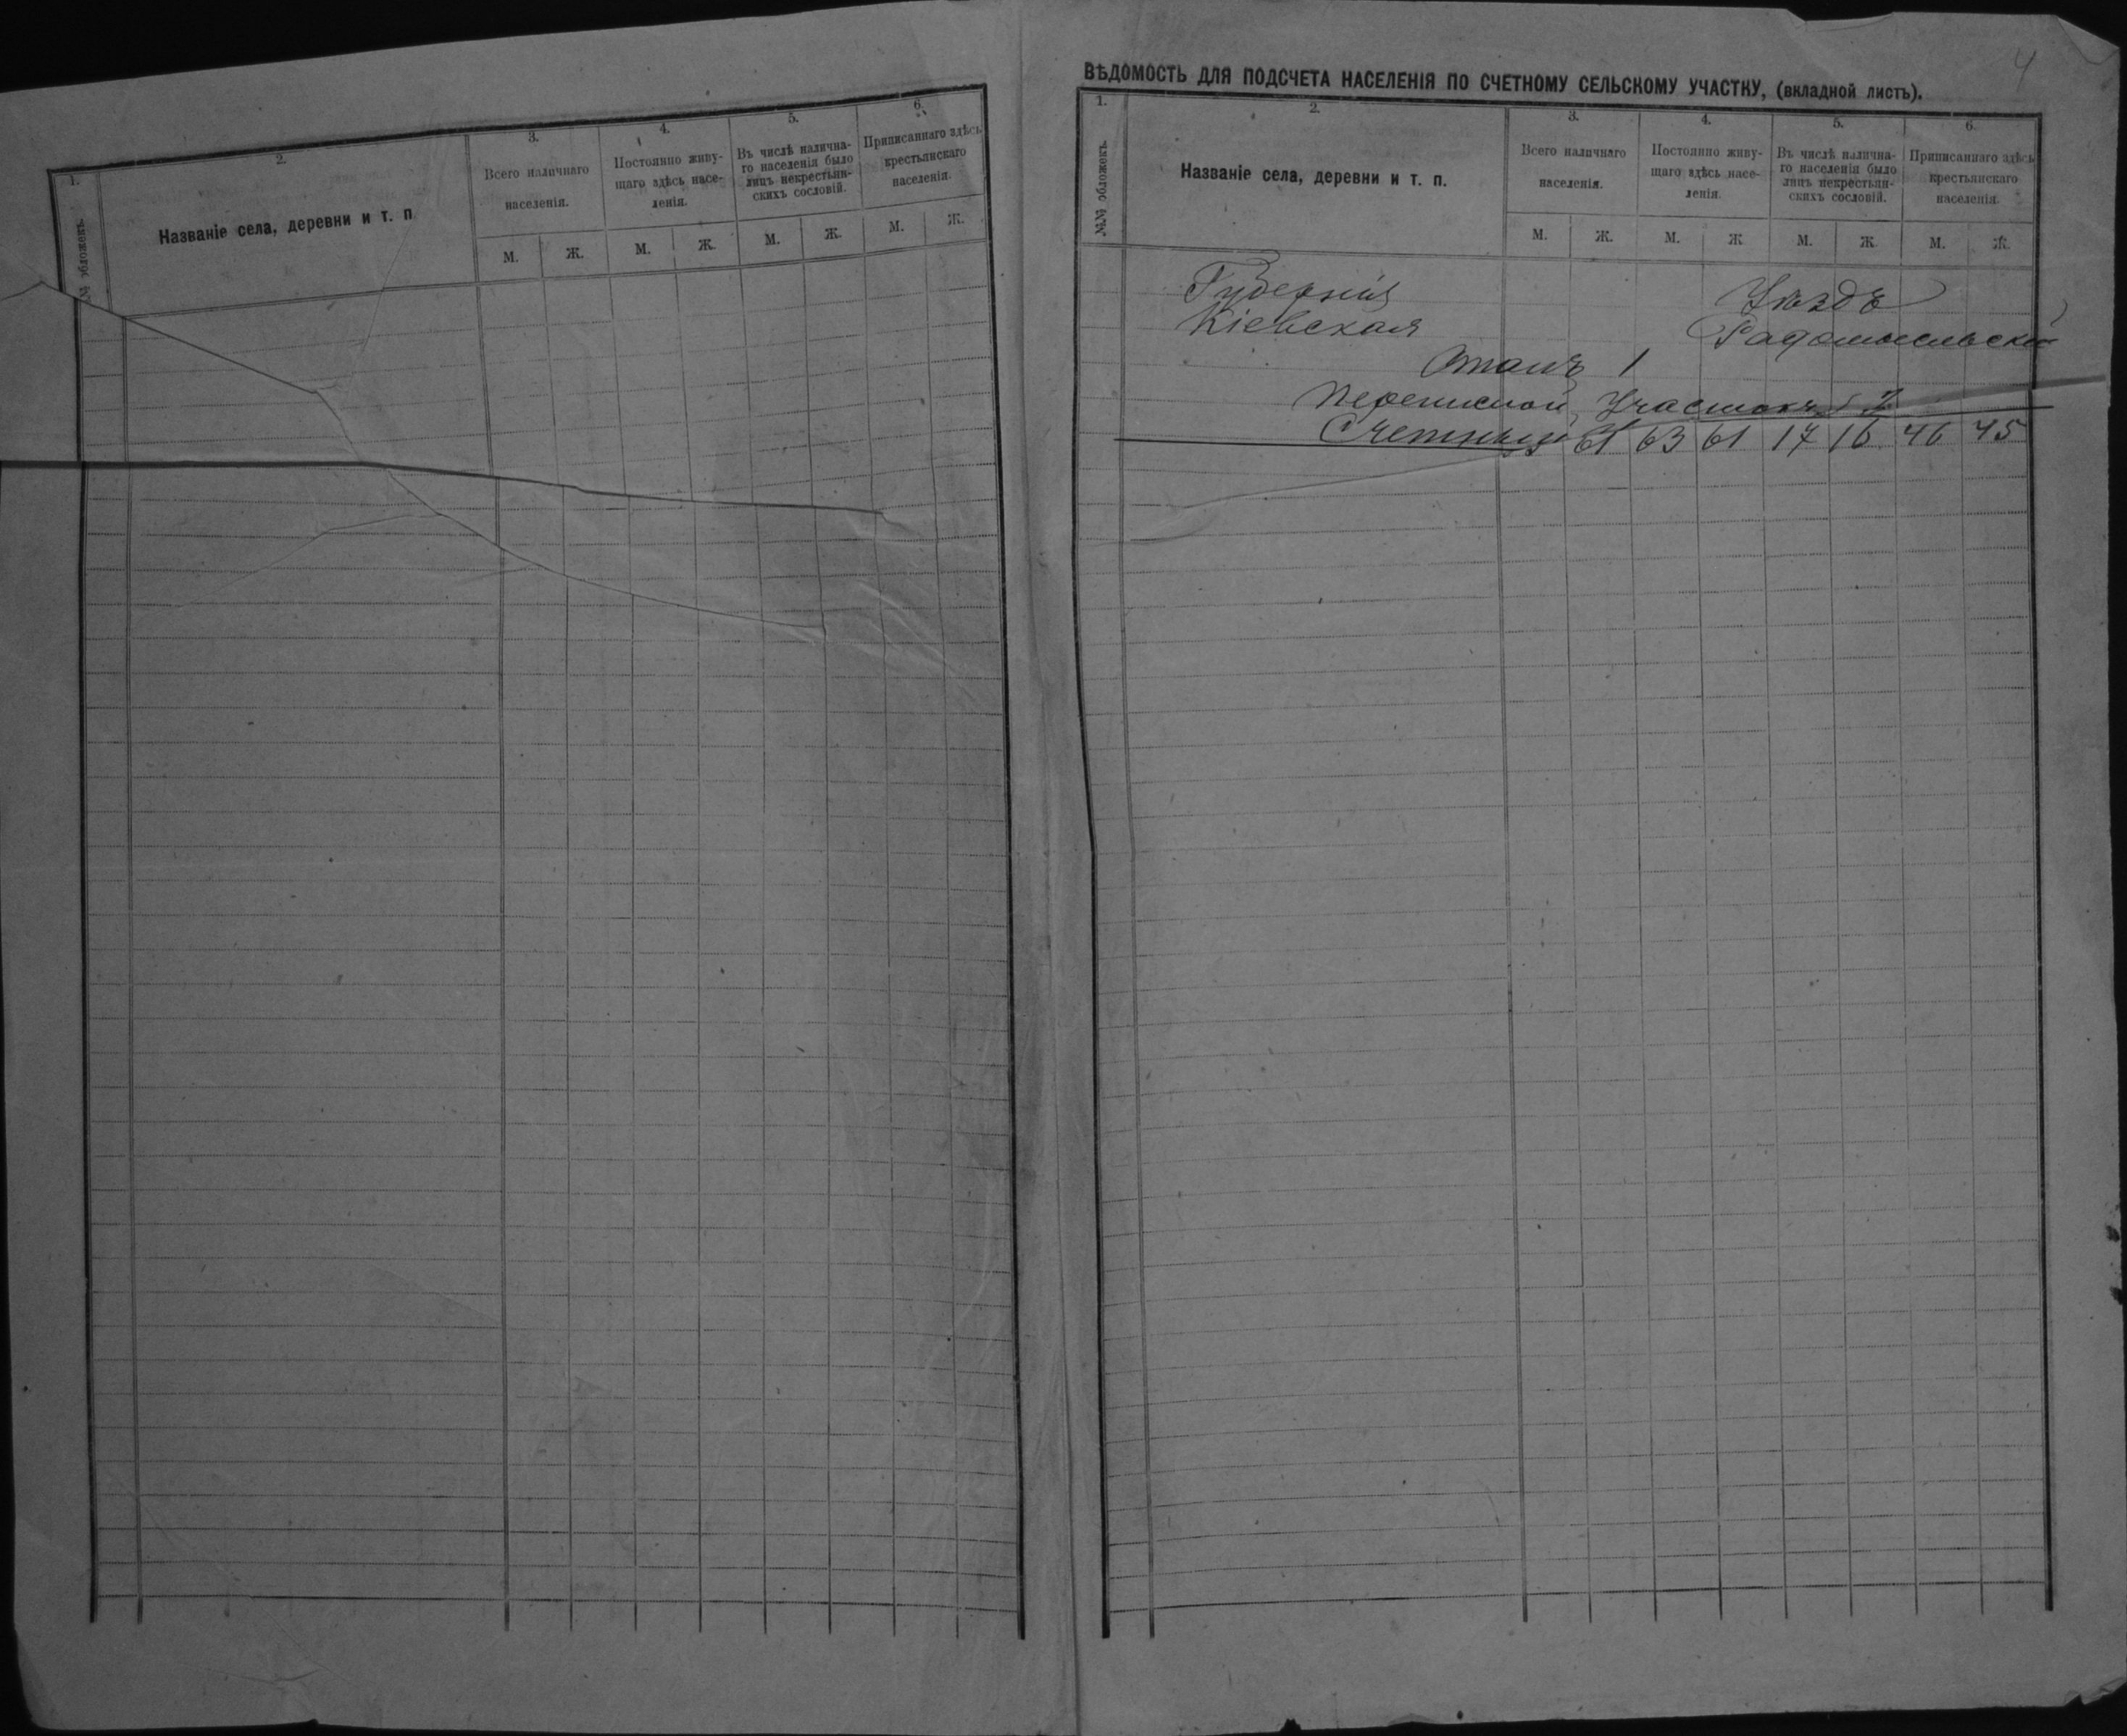 1.
2.
3.
4.
5.
6.
№ обложекъ.
Названіе села, деревни и т. п
Всего наличнаго
населенія.
Постоянно живу-
щаго здѣсь насе-
ленія.
Въ числѣ налична-
го населенія было
лицъ некрестьян-
скихъ сословій.
Приписаннаго здѣсь
крестьянскаго
населенія.
М. Ж. М. Ж. М. Ж. М. Ж.
4
ВѢДОМОСТЬ ДЛЯ ПОДСЧЕТА НАСЕЛЕНІЯ ПО СЧЕТНОМУ СЕЛЬСКОМУ УЧАСТКУ, (вкладной листъ).
1.
2.
3.
4.
5.
6.
№№ обложекъ.
Названіе села, деревни и т. п.
Всего наличнаго
населенія.
Постоянно живу-
щаго здѣсь насе-
ленія.
Въ числѣ налична-
го населенія было
лицъ некрестьян-
скихъ сословій.
Приписаннаго здѣсь
крестьянскаго
населенія.
М. Ж. М. Ж М. Ж. М. Ж.
Губернія Уѣздъ
Кіевская Радомысльскій
Станъ 1
Переписной Участокъ
Счетный 61 63 61 17 16 46 45